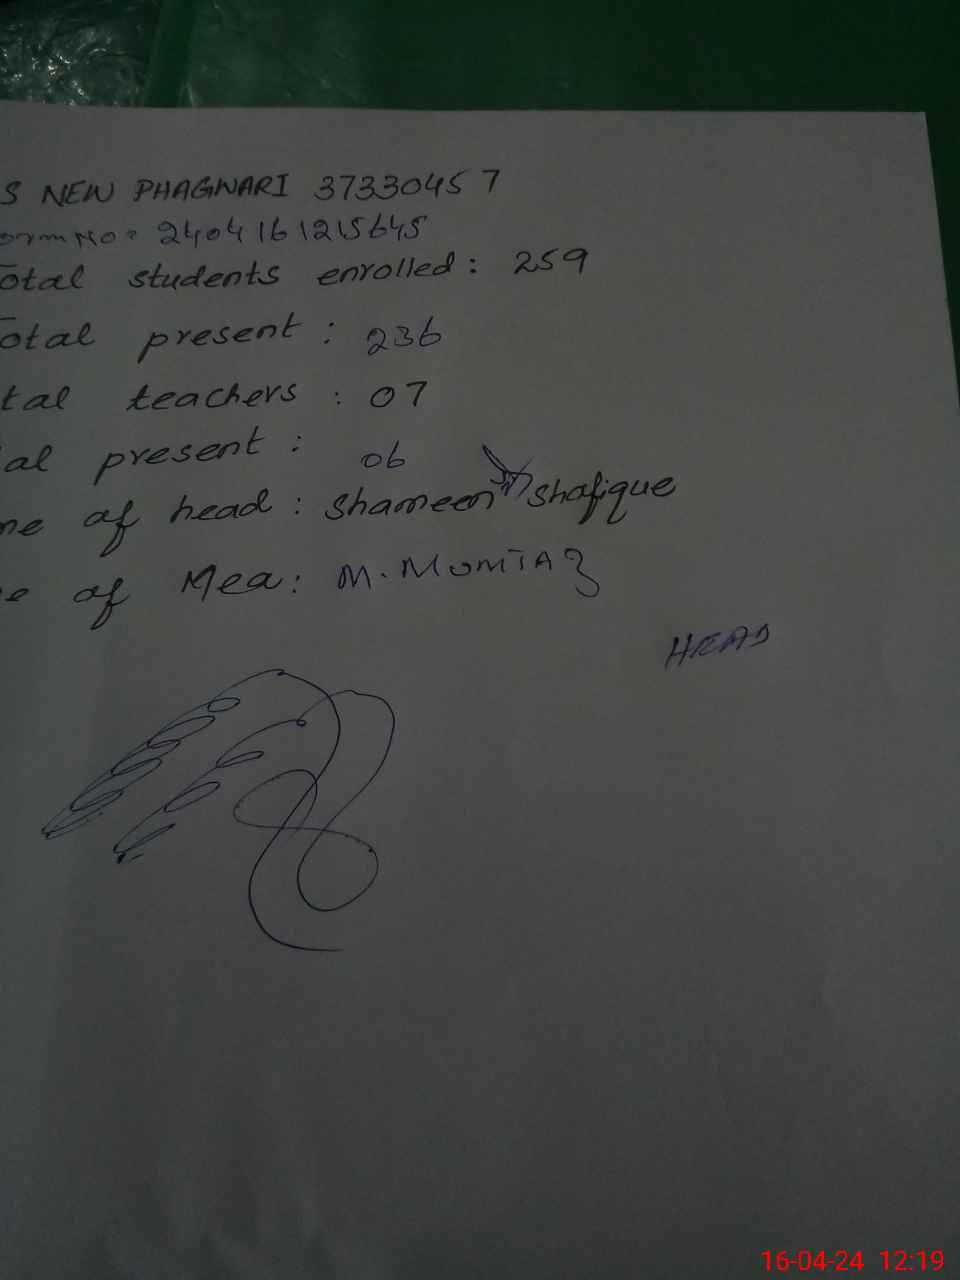 S NEW PHAGWARI 37330457
orm No: 2404161215645
Total students enrolled: 259
Total present: 236
tal teachers: 07
al present: 06
me of head: Shameem Shafique
e of Mea: M. MUMTAZ
HEAD
16-04-24 12:19